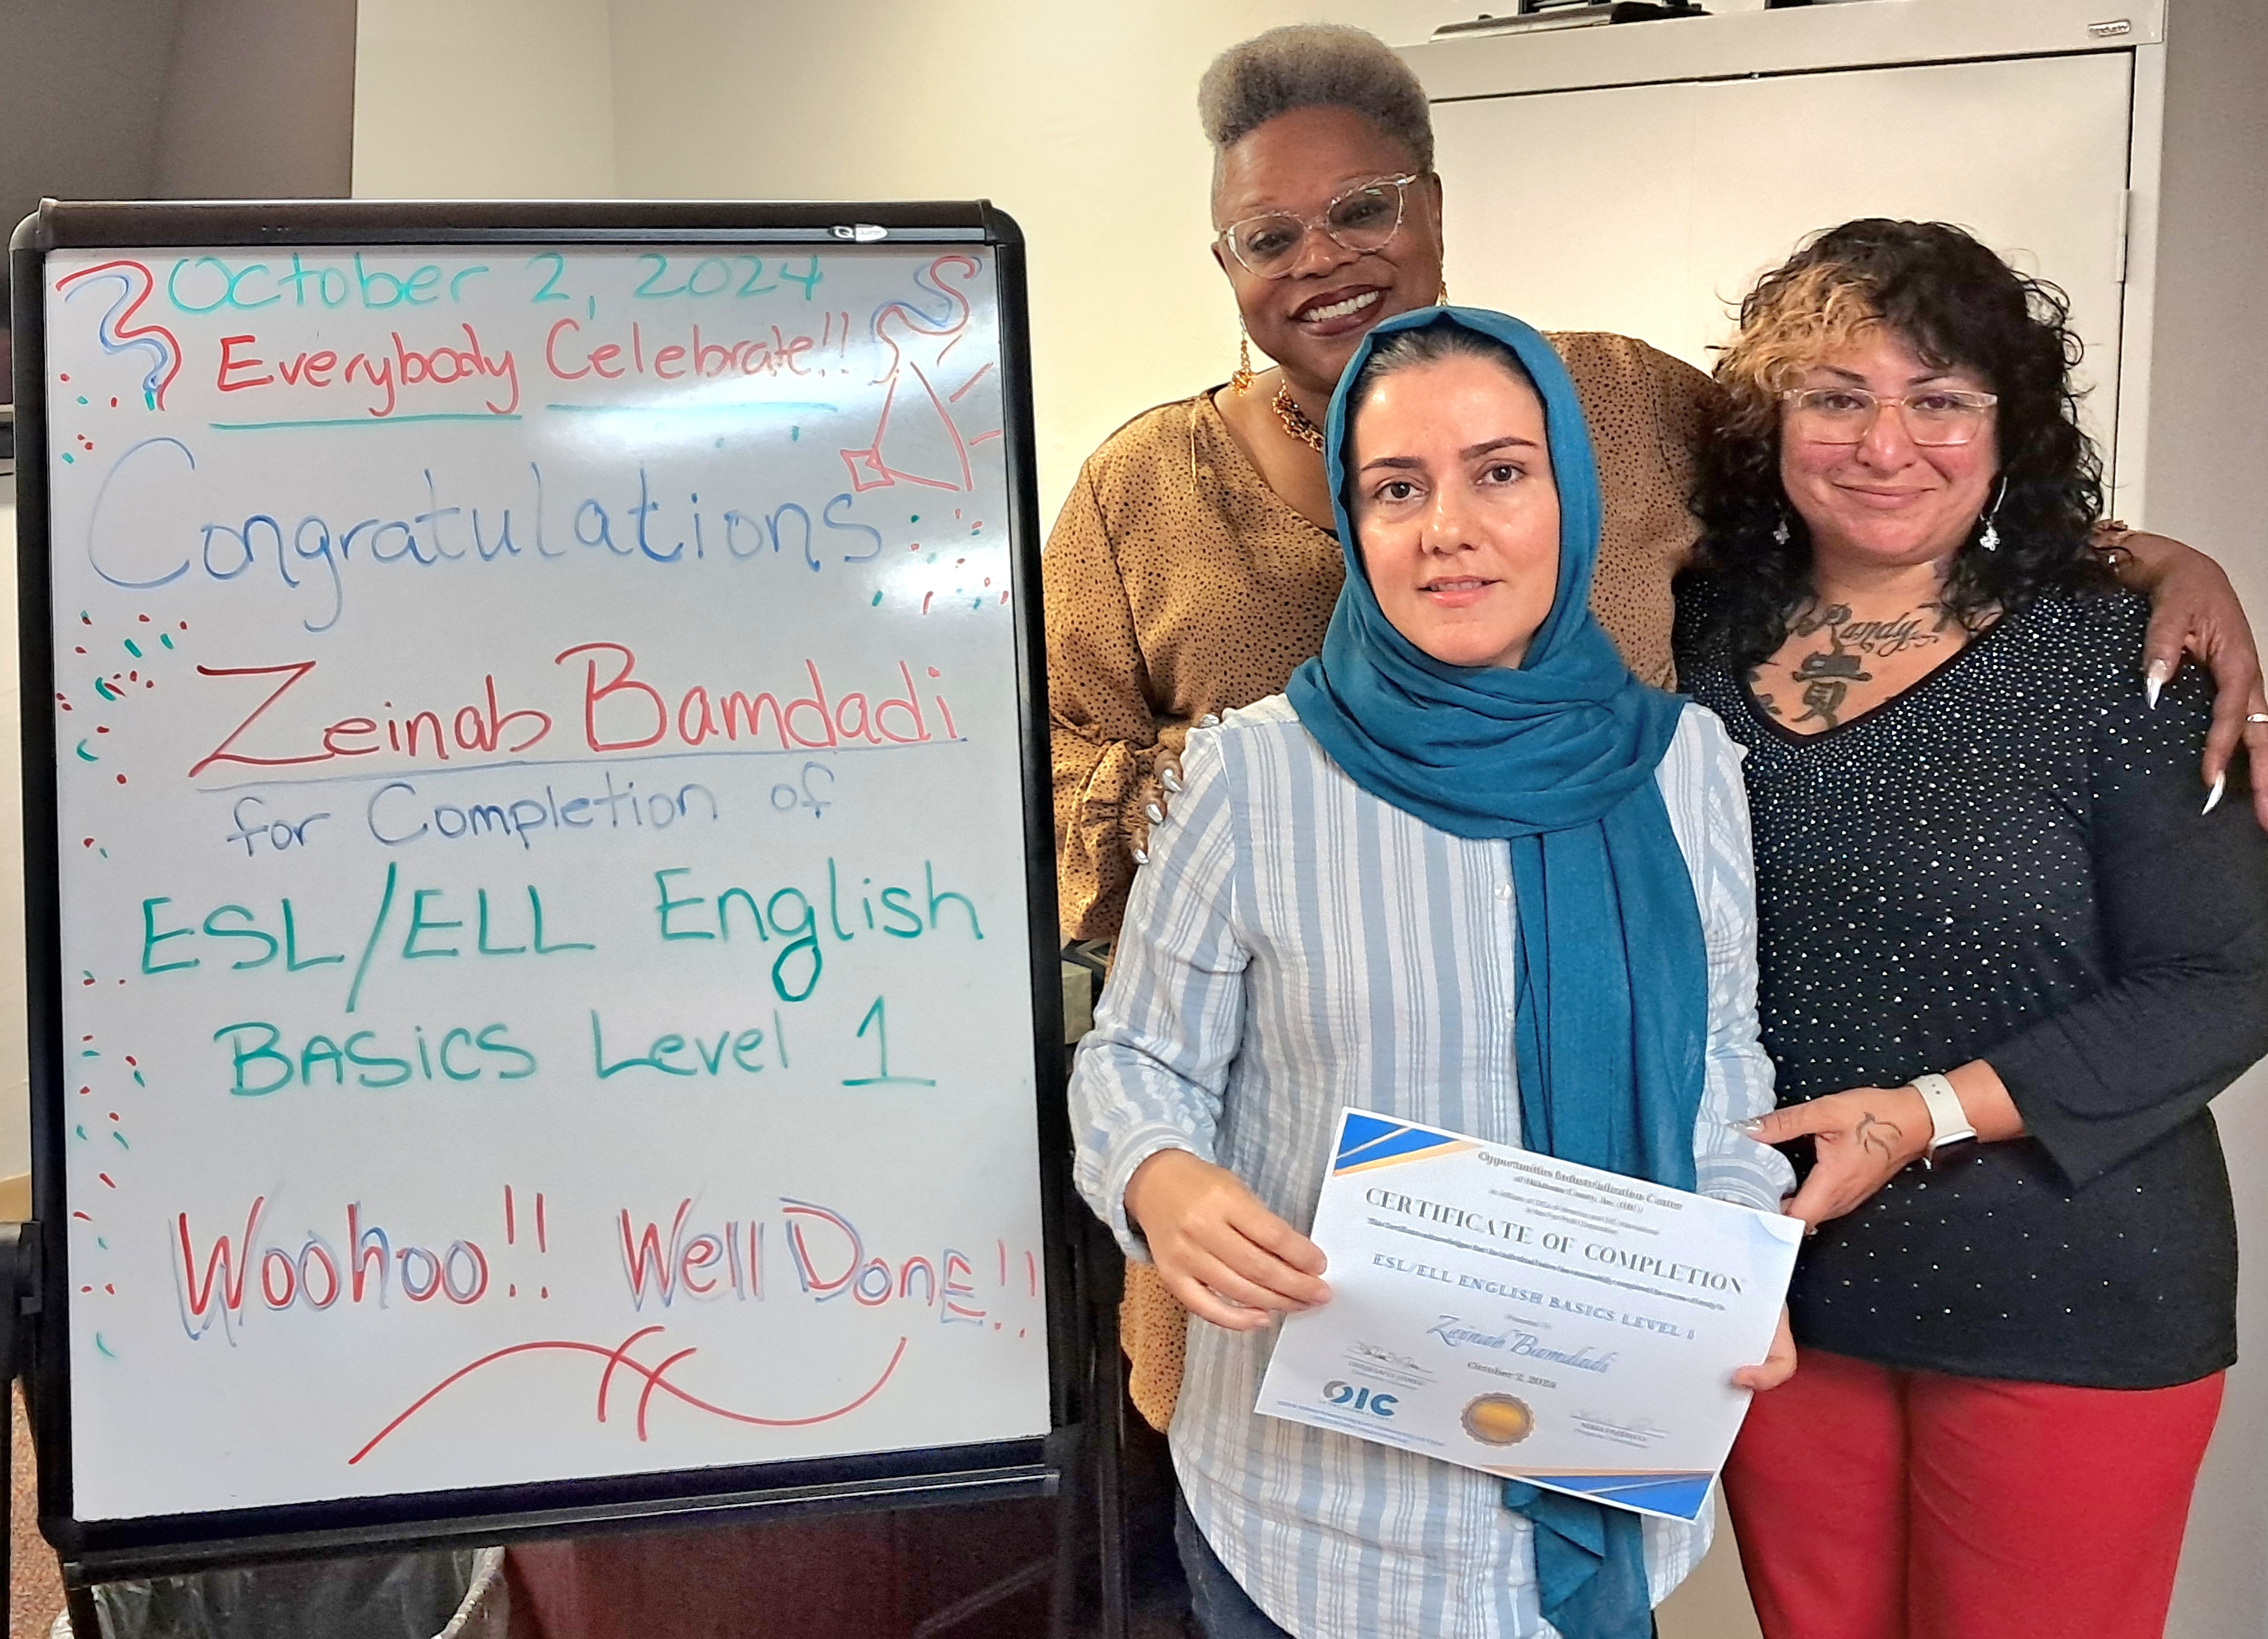 October 2, 2024
Everybody Celebrate!!
Congratulations
Zeinab Bamdadi
for Completion of
ESL/ELL English
BASiCS Level 1
Woohoo!! Well DonE!!
Randy
Opportunities Industrialization Center
of Oklahoma County, Inc. (OIC)
CERTIFICATE OF COMPLETION
ESL/ELL ENGLISH BASICS LEVEL 1
Zeinab Bamdadi
October 2, 2024
OIC